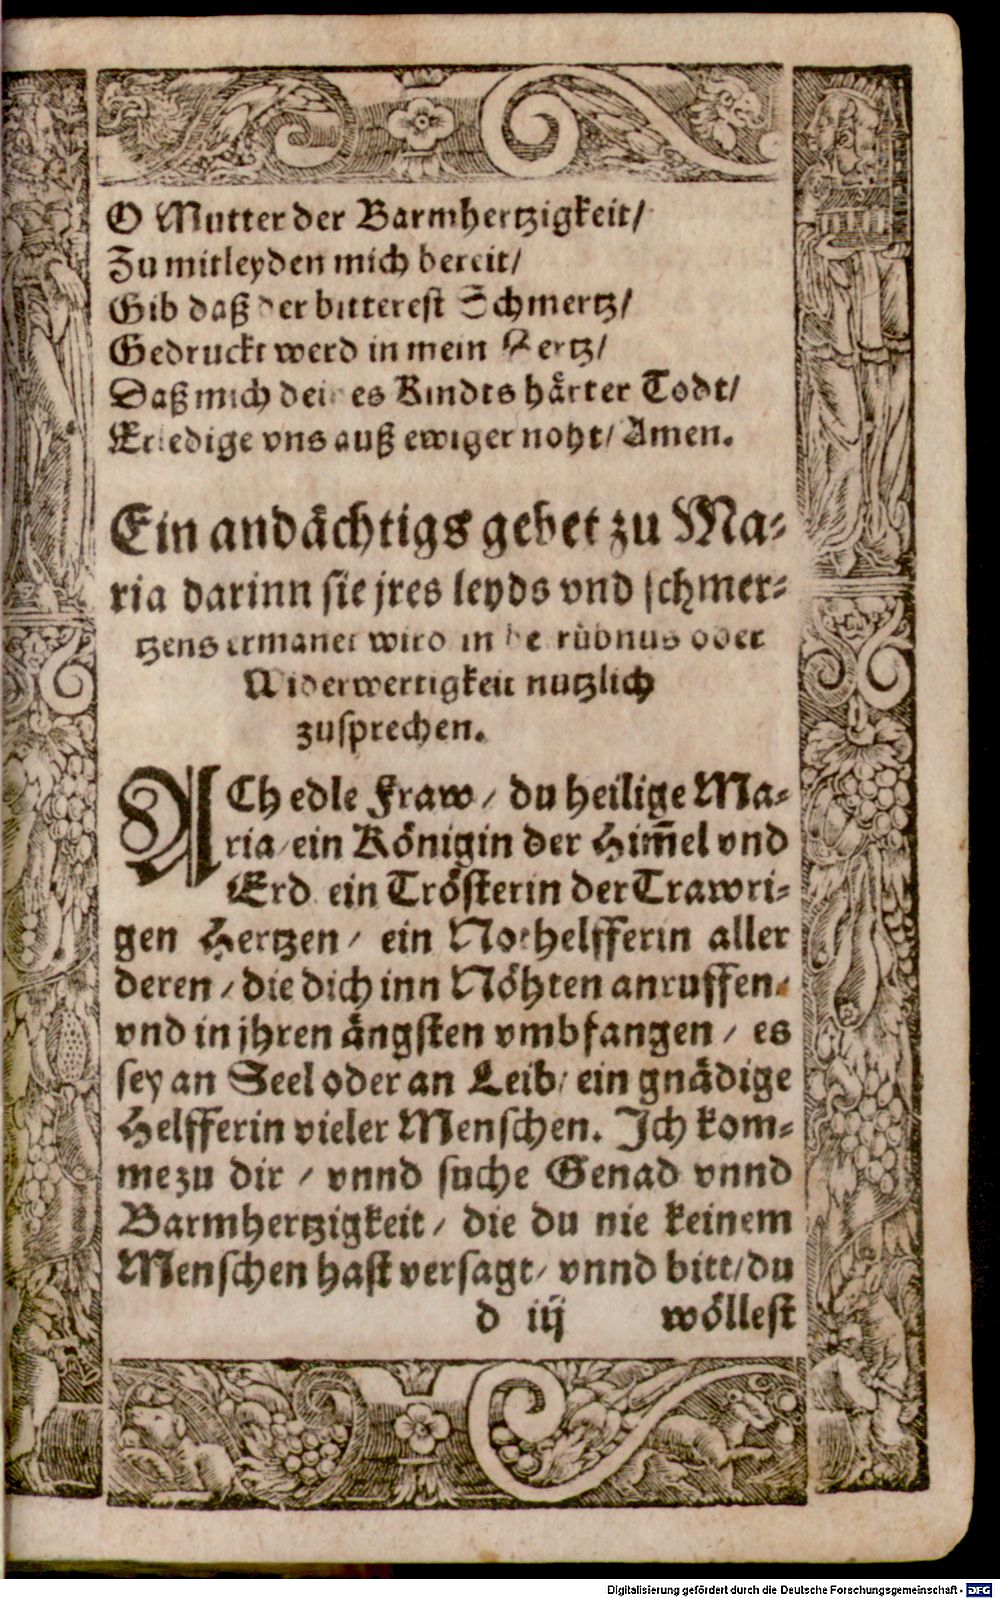 O Mutter der Barmhertzigkeit/
Zu mitleyden mich bereit/
Gib daß der bitterest Schmertz/
Gedruckt werd in mein Hertz/
Daß mich deines Kindts härter Todt/
Erledige vns auß ewiger noht/ Amen.
Ein andächtigs gebet zu Ma-
ria darinn sie jres leyds vnd schmer-
tzens ermanet wird in betrübnus oder
Widerwertigkeit nutzlich
zusprechen.
ACh edle Fraw / du heilige Ma-
ria/ ein Königin der Him̄el vnd
Erd ein Trösterin der Trawri-
gen Hertzen / ein Nothelfferin aller
deren / die dich inn Nöhten anruffen.
vnd in jhren ängsten vmbfangen / es
sey an Seel oder an Leib/ ein gnädige
Helfferin vieler Menschen. Ich kom-
me zu dir / vnnd suche Genad vnnd
Barmhertzigkeit / die du nie keinem
Menschen hast versagt/ vnnd bitt/ du
d iij wöllest
Digitalisierung gefördert durch die Deutsche Forschungsgemeinschaft - DFG